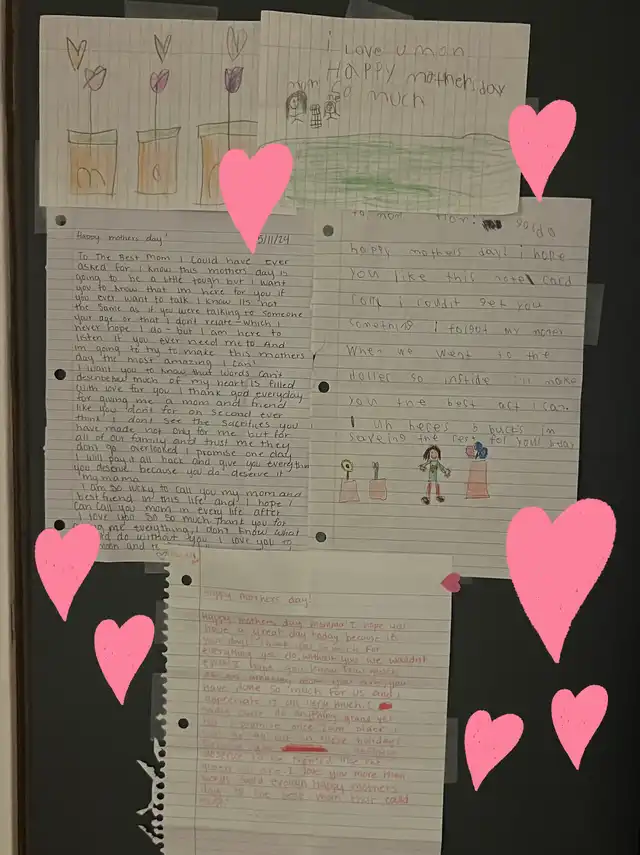 m
a
i Love u mom
Happy mother, day
So much
mom
me
Happy mothers day!
5/11/24
To The Best Mom I Could have Ever
asked for. I know this mothers day is
going to be a little tough but I want
you to know that im here for you if
you ever want to talk. I know its not
the same as if you were talking to someone
your age or that I don't relate - which I
never hope I do - but I am here to
listen if you ever need me to. And
im going to try to make this mothers
day the most amazing I can!
I want you to know that words can't
much of my heart is filled
with love for you. I thank god everyday
for giving me a mom and friend
like you. don't for on second ever
think I don't see the sacrifices you
have made not only for me but for
all of our family and trust me they
dont go overlooked I promise one day
I will pay it all back and give you everything
you deserve because you do deserve it
my mama
I am so lucky to call you my mom and
best friend in this life and I hope I
can call you mom in every life after
I love you so so much Thank you for
me everything, I don't know what
do without you I love you to
moon and
to mom
happy mothers day! i hope
you like this note card
i couldit get you
something i forgot my money
when we went to the
doller so instide i'll make
you the best act i can.
uh heres 5 bucks im
saveing the rest for your bday
Happy mothers day!
Happy mothers day momma I hope you
have a great day today because its
your day! thank you so much for
everything you do, without you we wouldn't
I hope you know how much
have done so much for us and i
very much. I
in these
deserve to be treated like
queen I love you more than
words Happy mothers
day to the best mom that could